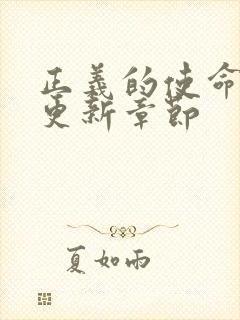 正義的使命
更新章節
夏如雨